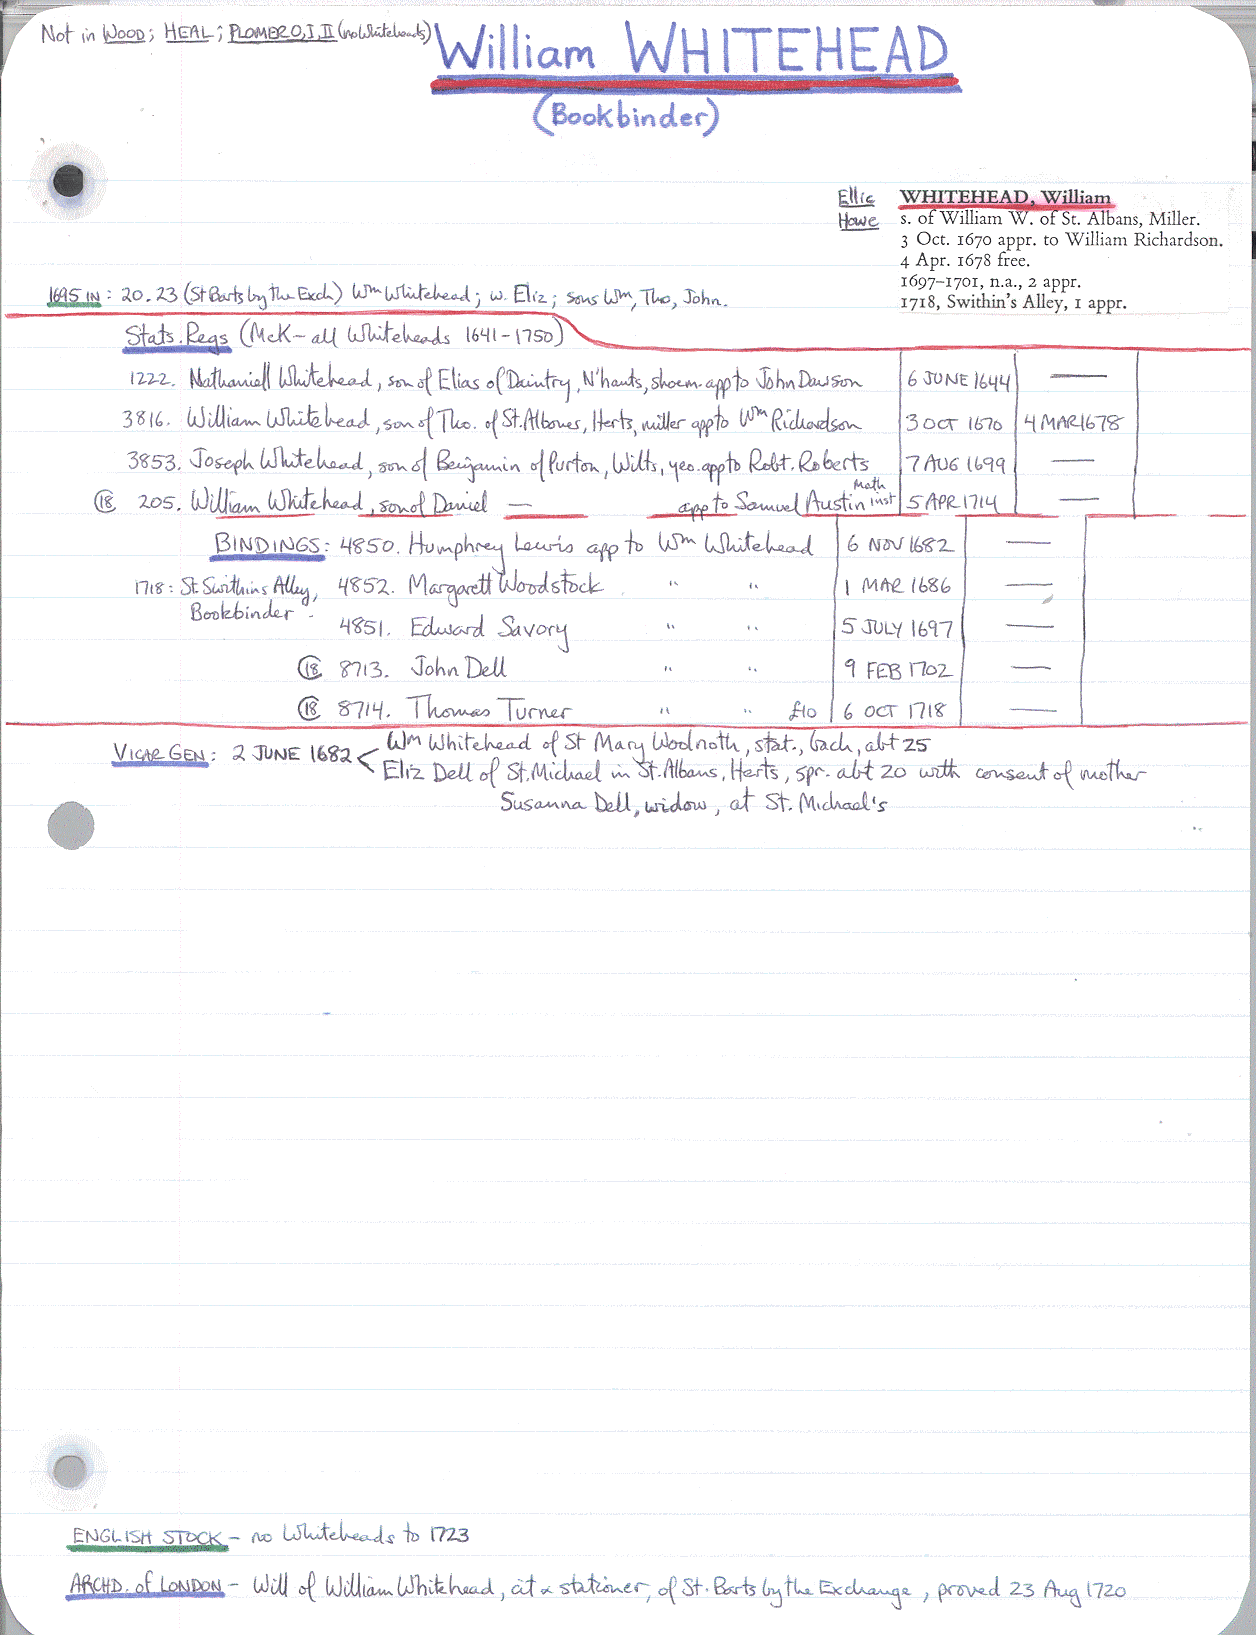 Not in WOOD; HEAL; PLOMER O, I, II (no Whiteheads)
William WHITEHEAD
(Bookbinder)
Ellic
Howe
WHITEHEAD, William
s. of William W. of St. Albans, Miller.
3 Oct. 1670 appr. to William Richardson.
4 Apr. 1678 free.
1697-1701, n.a., 2 appr.
1718, Swithin's Alley, 1 appr.
1695 IN: 20.23 (St Barts by the Exch) Wm Whitehead; w. Eliz; sons Wm, Tho, John.
Stats. Regs (McK - all Whiteheads 1641-1750)
1222. Nathaniell Whitehead, son of Elias of Daintry, N'hants, shoem. app to John Dawson 6 JUNE 1644 —
3816. William Whitehead, son of Tho. of St. Albones, Herts, miller app to Wm Richardson 3 OCT 1670 4 MAR 1678
3853. Joseph Whitehead, son of Benjamin of Purton, Wilts, yeo. app to Robt. Roberts 7 AUG 1699 —
(18) 205. William Whitehead, son of Daniel — app to Samuel Austin Math inst 5 APR 1714 —
BINDINGS: 4850. Humphrey Lewis app to Wm Whitehead 6 NOV 1682 —
1718: St. Swithins Alley, Bookbinder - 4852. Margarett Woodstock " " 1 MAR 1686 —
4851. Edward Savory " " 5 JULY 1697 —
(18) 8713. John Dell " " 9 FEB 1702 —
(18) 8714. Thomas Turner " " £10 6 OCT 1718 —
VICAR GEN: 2 JUNE 1682 < Wm Whitehead of St Mary Woolnoth, stat., bach, abt 25
Eliz Dell of St. Michael in St. Albans, Herts, spr. abt 20 with consent of mother
Susanna Dell, widow, at St. Michael's
ENGLISH STOCK - no Whiteheads to 1723
ARCHD. of LONDON - Will of William Whitehead, cit & stationer, of St. Barts by the Exchange, proved 23 Aug 1720